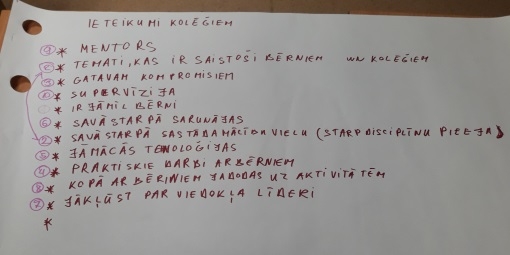 IETEIKUMI KOLĒĢIEM
⑨ * MENTORS
* TEMATI, KAS IR SAISTOŠI BĒRNIEM UN KOLĒĢIEM
③ * GATAVAM KOMPROMISIEM
* SUPERVĪZIJA
* IR JĀMĪL BĒRNI
⑥ * SAVĀ STARPĀ SARUNĀJAS
② * SAVĀ STARPĀ SASTĀDA MĀCĪBU VIELU (STARPDISCIPLĪNU PIEEJA)
⑤ * JĀMĀCĀS TEHNOLOĢIJAS
④ * PRAKTISKIE DARBI AR BĒRNIEM
⑧ * KOPĀ AR BĒRNIEM JĀDODAS UZ AKTIVITĀTĒM
⑦ * JĀKĻŪST PAR VIEDOKĻA LĪDERI
*